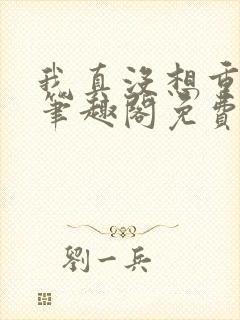 我真没想重
笔趣阁免费
劉一兵